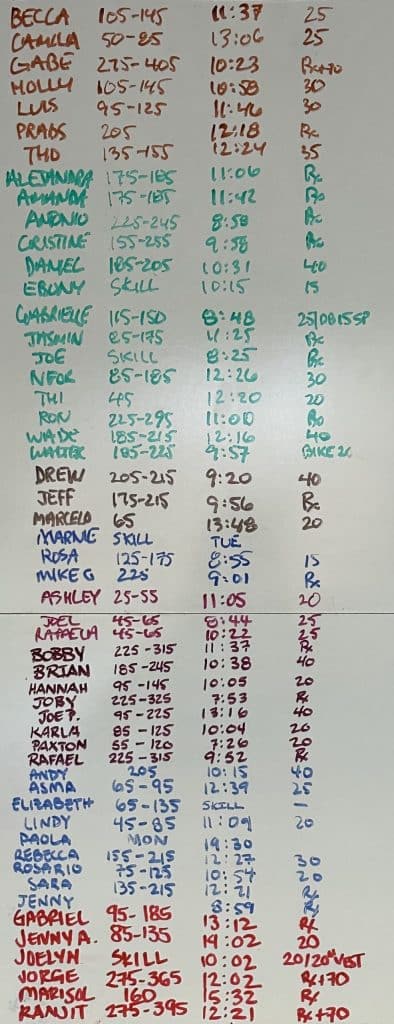 BECCA 105-145 11:37 25
CAMILA 50-85 13:06 25
GABE 275-405 10:23 Rx+70
HOLLY 105-145 10:58 30
LUIS 95-125 11:46 30
PRABS 205 12:18 Rx
THO 135-155 12:24 35
ALEJANDRA 175-185 11:06 Rx
AMANDA 175-185 11:42 Rx
ANTONIO 225-245 8:58 Rx
CRISTINE 155-255 9:58 Rx
DANIEL 185-205 10:31 40
EBONY SKILL 10:15 15
GABRIELLE 115-150 8:48 25/DB15SP
JASMIN 85-175 11:25 Rx
JOE SKILL 8:25 Rx
NFOR 85-185 12:26 30
THI 45 12:20 20
RON 225-295 11:00 Rx
WADE 185-215 12:16 40
WALTER 185-225 9:57 BIKE
DREW 205-215 9:20 40
JEFF 175-215 9:56 Rx
MARCELO 65 13:48 20
MARNIE SKILL TUE
ROSA 125-175 8:55 15
MIKE G 225 9:01 Rx
ASHLEY 25-55 11:05 20
JOEL 45-65 8:44 25
RAFAELA 45-65 10:22 25
BOBBY 225-315 11:37 Rx
BRIAN 185-245 10:38 40
HANNAH 95-145 10:05 20
JOBY 225-325 7:53 Rx
JOE P. 95-225 13:16 40
KARLA 85-125 10:04 20
PAXTON 55-120 7:26 20
RAFAEL 225-315 9:52 Rx
ANDY 205 10:15 40
ASMA 65-95 12:39 25
ELIZABETH 65-135 SKILL —
LINDY 45-85 11:09 20
PAOLA MON 19:30
REBECCA 155-215 12:27 30
ROSARIO 75-125 10:54 20
SARA 135-215 12:21 Rx
JENNY 8:59 Rx
GABRIEL 95-185 13:12 Rx
JENNY A. 85-135 19:02 20
JOELYN SKILL 10:02 20/20# VEST
JORGE 275-365 12:02 Rx+70
MARISOL 160 15:32 Rx
RANJIT 275-395 12:21 Rx+70